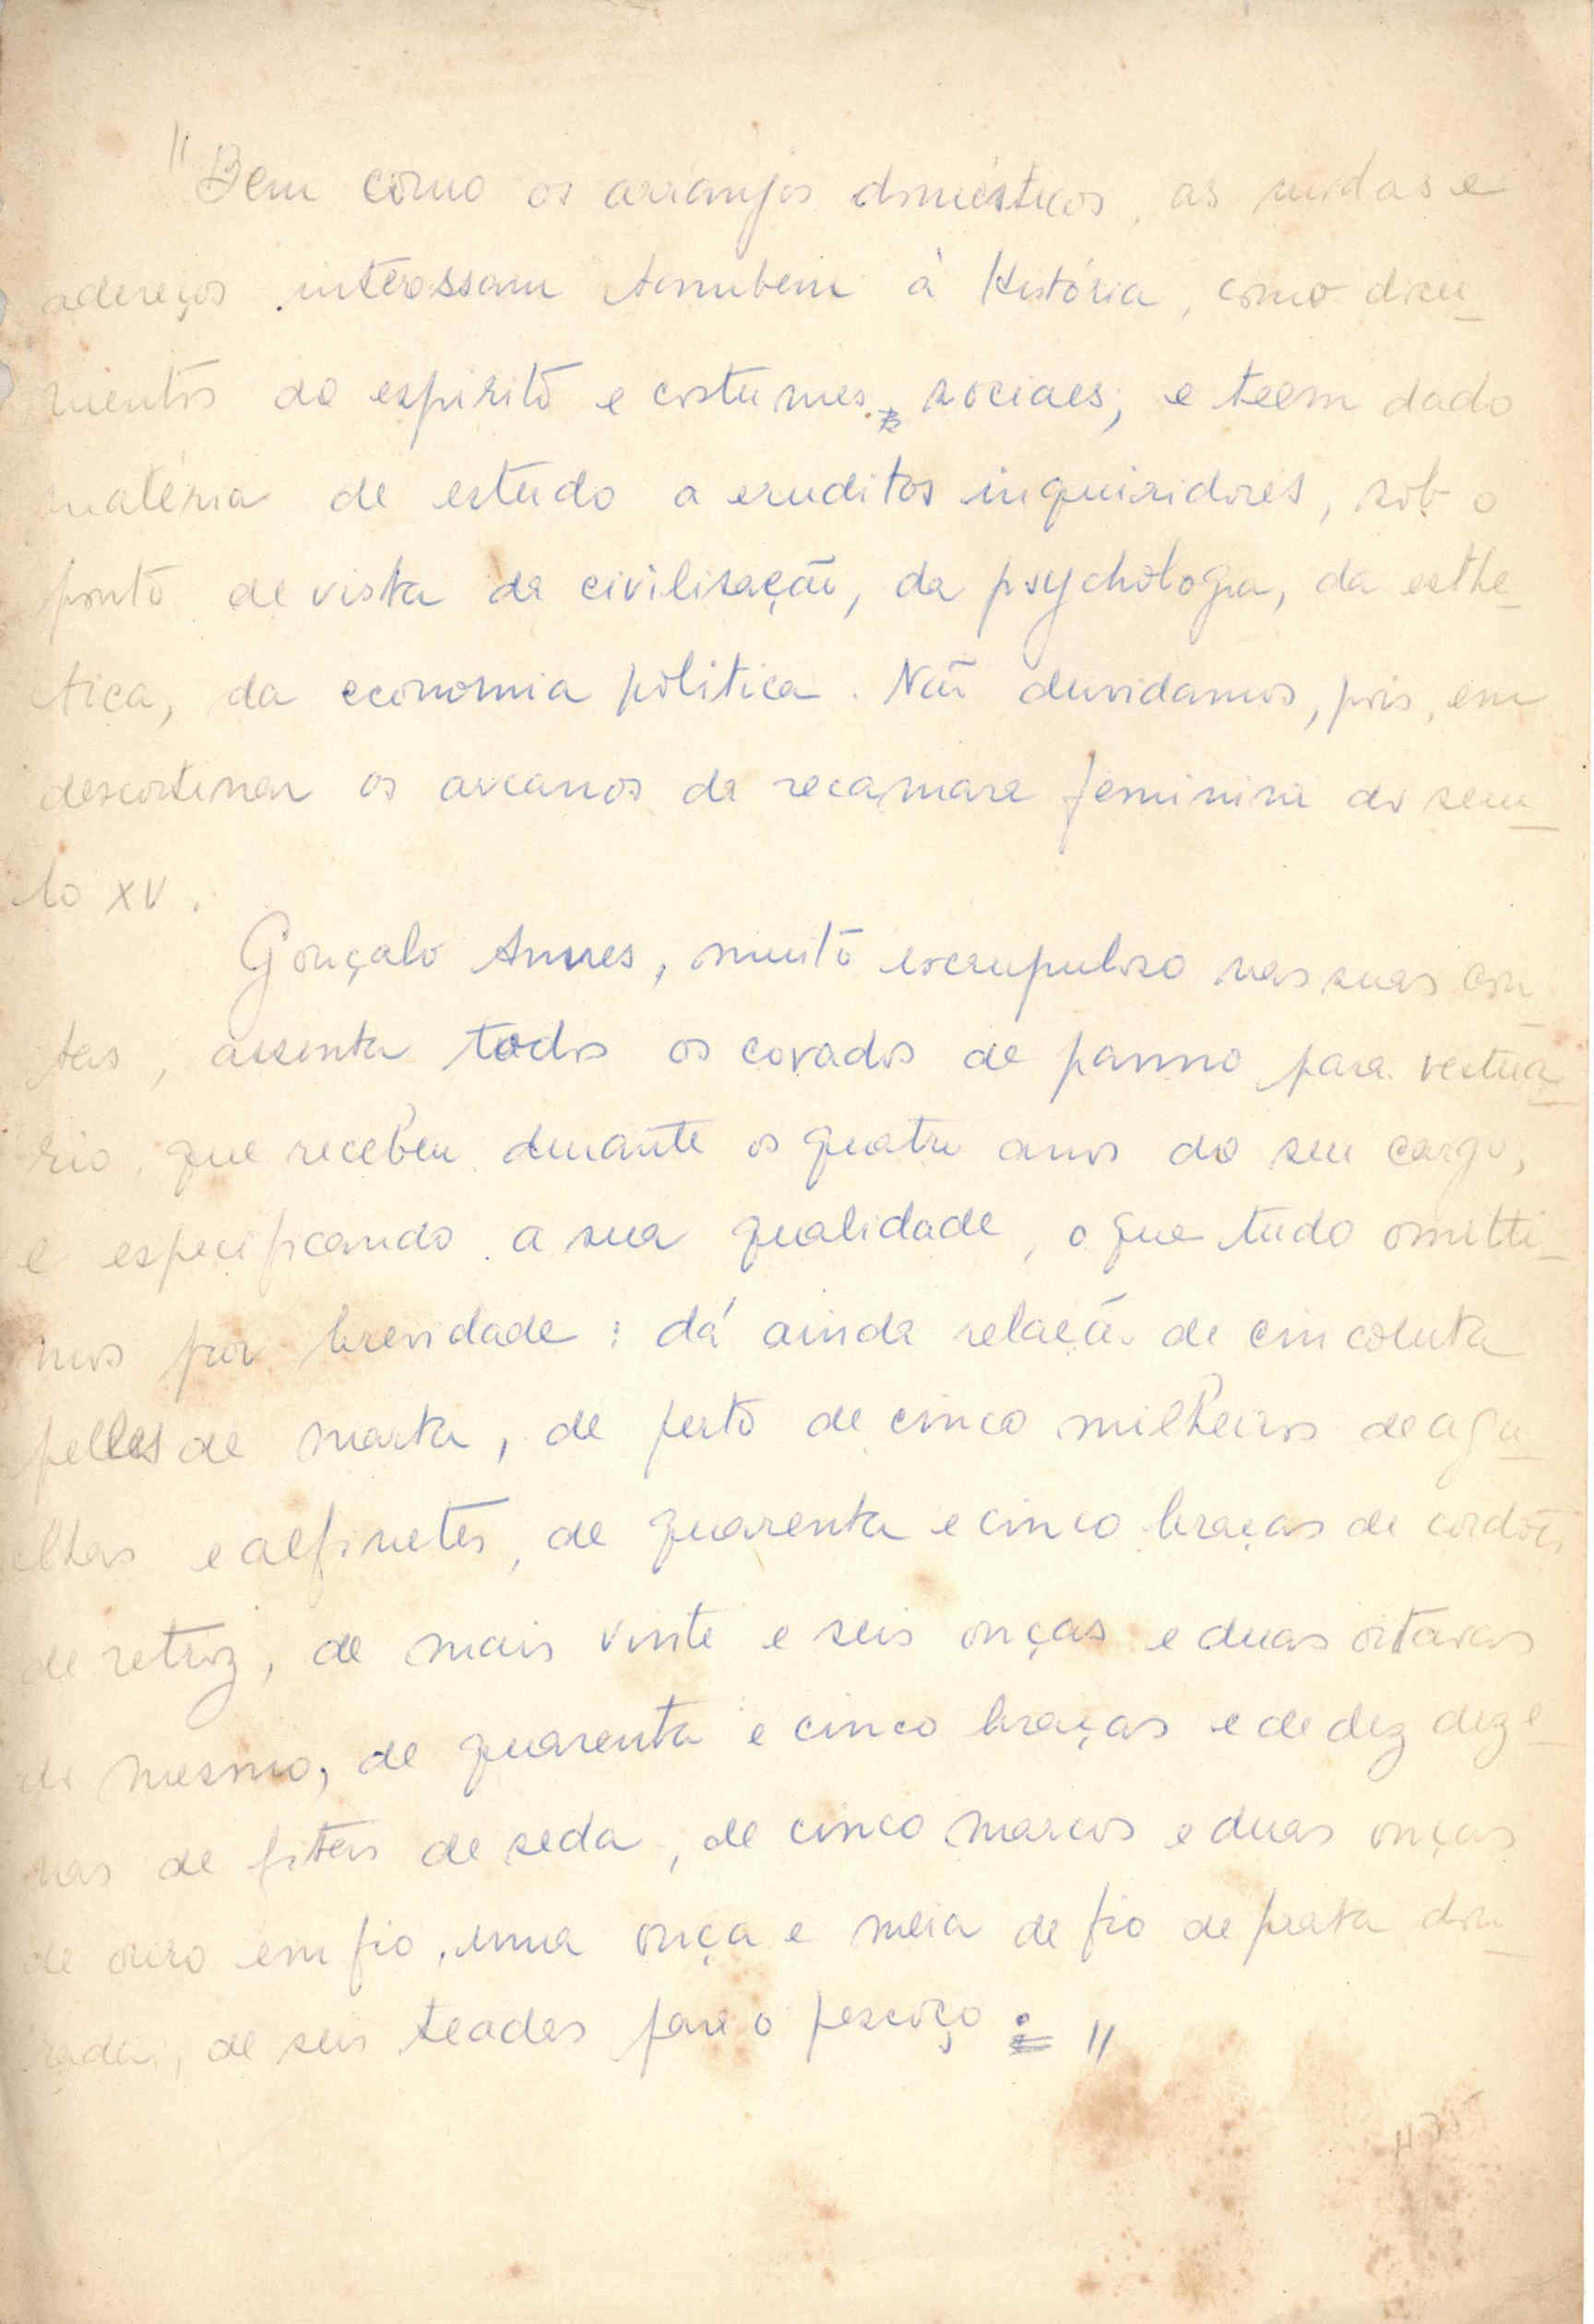 "Bem como os arranjos domésticos, as modas e
adereços interessam tambem à História, como docu-
mentos do espirito e costumes sociaes; e teem dado
matéria de estudo a eruditos inquiridores, sob o
ponto de vista da civilisação, da psychologia, da esthe-
tica, da economia politica. Não duvidamos, pois, em
descortinar os arcanos da recamara feminina do secu-
lo XV.
Gonçalo Annes, muito escrupuloso nas suas con-
tas, assenta todos os covados de panno para vestua-
rio, que recebeu durante os quatro anos do seu cargo,
e especificando a sua qualidade, o que tudo omitti-
mos por brevidade: dá ainda relação de cincoenta
pelles de marta, de perto de cinco milheiros de agu-
lhas e alfinetes, de quarenta e cinco braças de cordões
de retroz, de mais vinte e seis onças e duas oitavas
do mesmo, de quarenta e cinco braças e de dez deze-
nas de fitas de seda, de cinco marcos e duas onças
de ouro em fio, uma onça e meia de fio de prata dou-
rada, de seis teadas para o pescoço: "